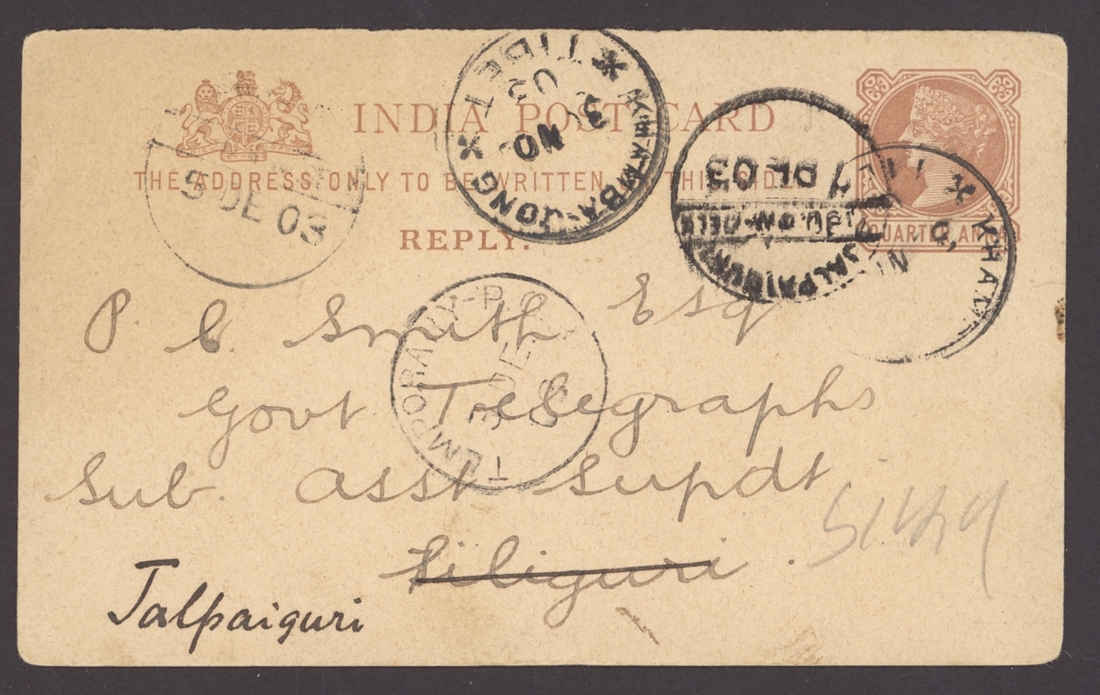 INDIA POST CARD
THE ADDRESS ONLY TO BE WRITTEN THIS
REPLY.
QUARTER ANNA
5 DE 03
KHAMBA-JONG
TIBET
NO
03
JALPAIGURI
1 DE 03
KHAM
TEMPORARY-P.
DE
03
P. C. Smith Esq
Govt Telegraphs
Sub. Asst Supdt
Siliguri.
Jalpaiguri